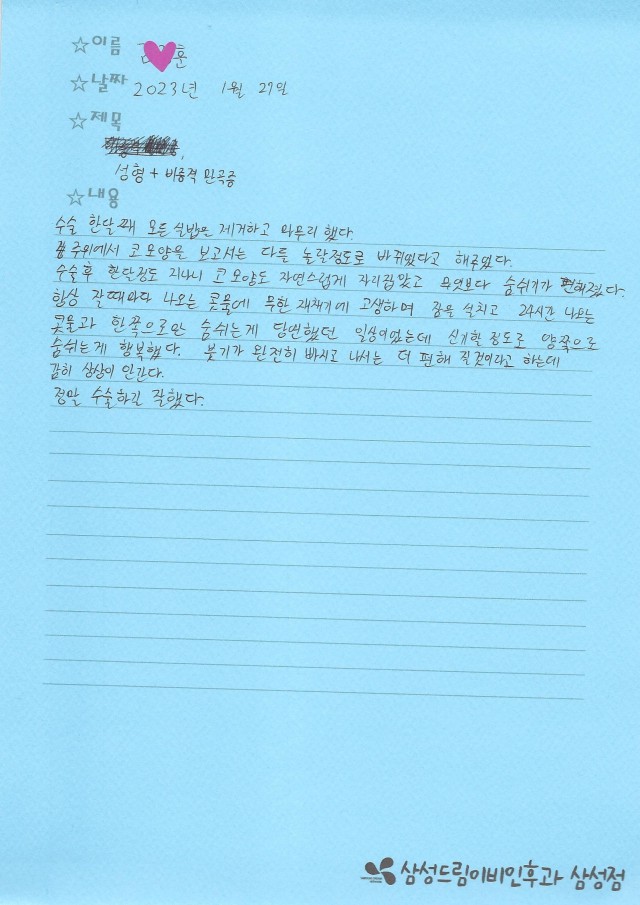 ☆이름 훈
☆날짜 2023년 1월 27일
☆제목
성형 + 비중격 만곡증
☆내용
수술 한달째 모든 실밥은 제거하고 마무리 했다.
주위에서 코모양을 보고서는 다들 놀랄정도로 바뀌었다고 해주었다.
수술후 한달정도 지나니 코모양도 자연스럽게 자리잡았고 무엇보다 숨쉬기가 편해졌다.
항상 잘때마다 나오는 콧물에 무한 재채기에 고생하며 잠을 설치고 24시간 나오는
콧물과 한쪽으로만 숨쉬는게 당연했던 일상이었는데 신기할 정도로 양쪽으로
숨쉬는게 행복했다. 붓기가 완전히 빠지고 나서는 더 편해 질것이라고 하는데
감히 상상이 안간다.
정말 수술하길 잘했다.
삼성드림이비인후과 삼성점